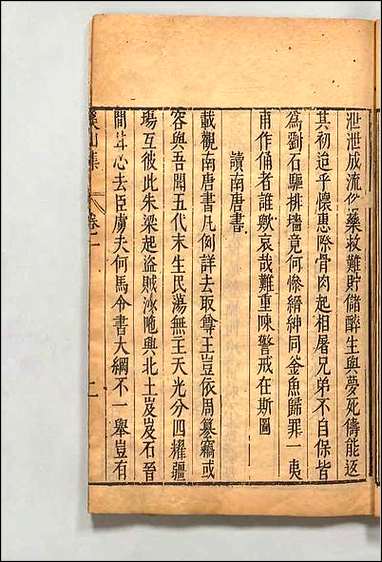 泄泄成流伱藥救難貯儲醉生與夢死儔能返
其初迨乎懷惠際骨肉起相屠兄弟不自保皆
為劉石驅排墻竟何慘縉紳同釜魚歸罪一夷
甫作俑者誰歟哀哉難重陳警戒在斯圖
讀南唐書
載觀南唐書凡例詳去取尊王豈依周纂竊或
容與吾聞五代末生民蕩無主天光分四耀疆
場互彼此朱梁起盜賊沙陁興北土岌岌石晉
間甘心去臣虜夫何馬令書大綱不一舉豈有
溪山集
卷二
二